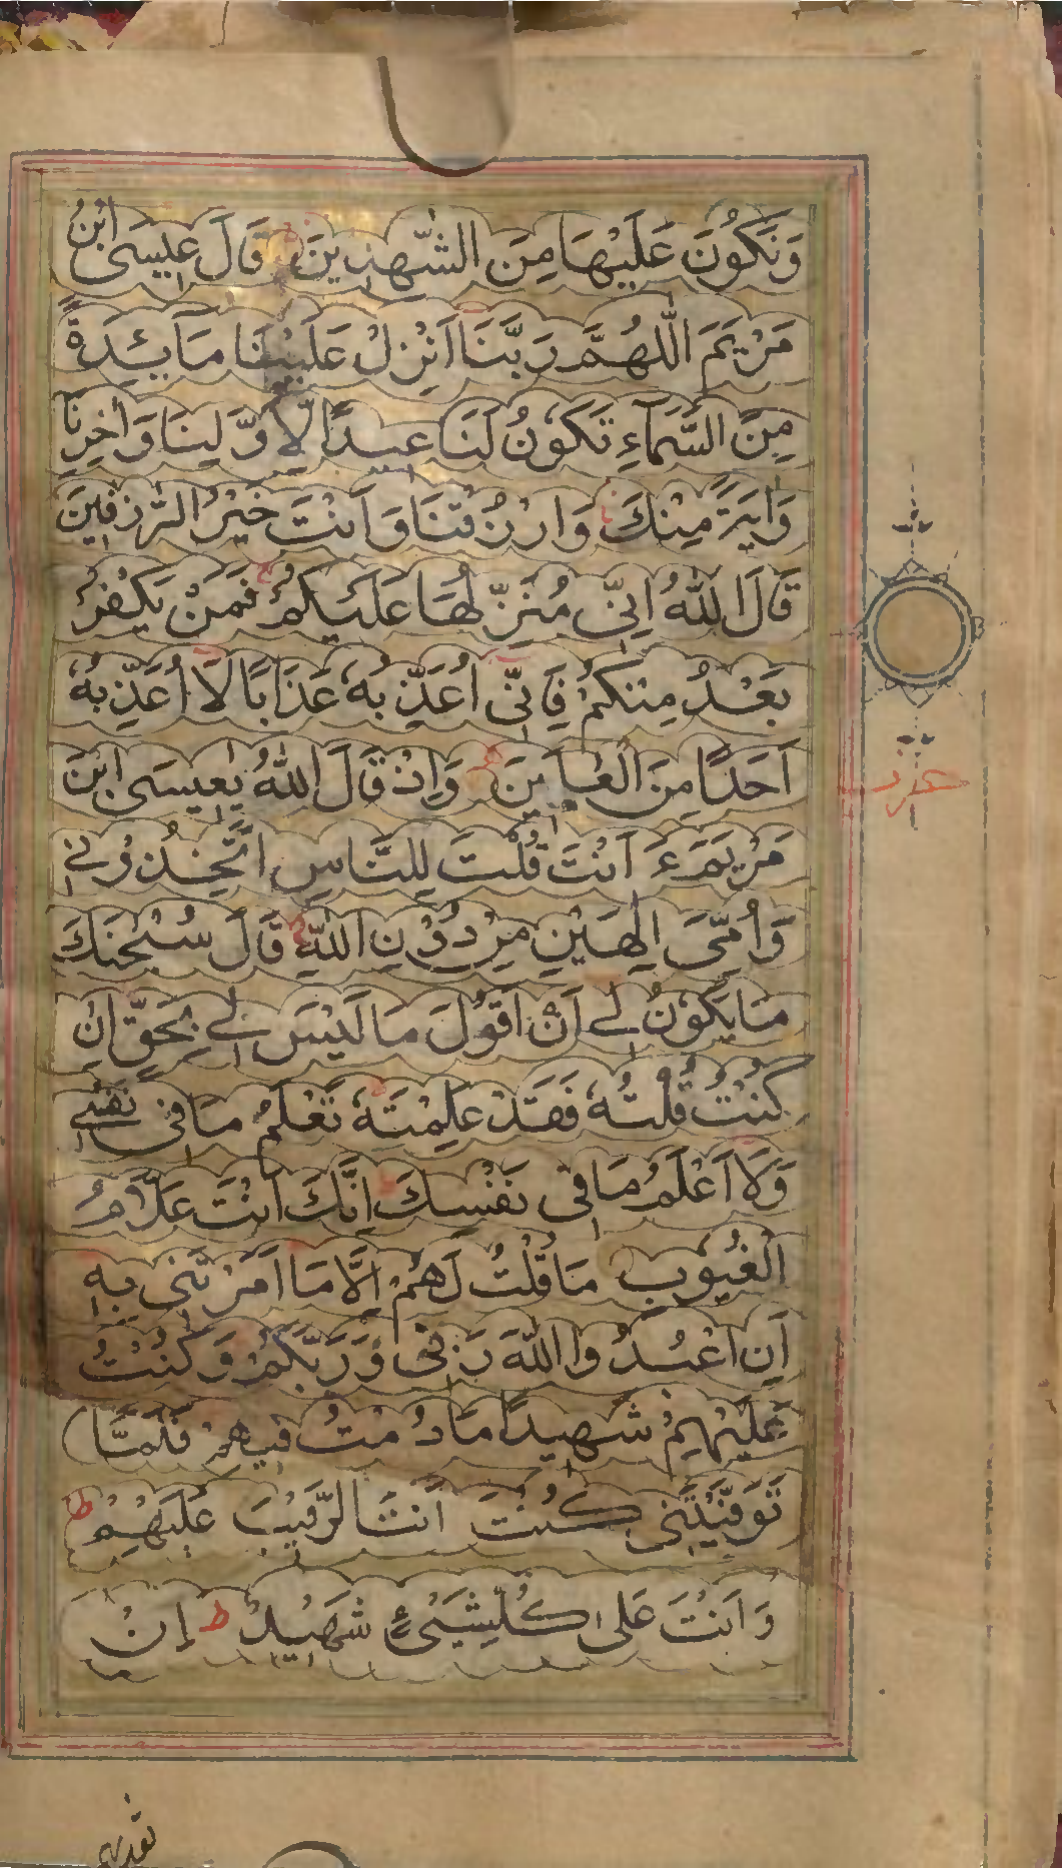 وَنَكُونَ عَلَيْهَا مِنَ الشّٰهِدِينَ قَالَ عِيسَى ابْنُ
مَرْيَمَ اللّٰهُمَّ رَبَّنَا اَنْزِلْ عَلَيْنَا مَآئِدَةً
مِنَ السَّمَآءِ تَكُوْنُ لَنَا عِيدًا لِّاَوَّلِنَا وَاٰخِرِنَا
وَاٰيَةً مِنْكَ وَارْزُقْنَا وَاَنْتَ خَيْرُ الرّٰزِقِينَ
قَالَ اللّٰهُ اِنِّى مُنَزِّلُهَا عَلَيْكُمْ فَمَنْ يَكْفُرْ
بَعْدُ مِنْكُمْ فَاِنِّى اُعَذِّبُهٗ عَذَابًا لَا اُعَذِّبُهٗ
اَحَدًا مِنَ الْعٰلَمِينَ وَاِذْ قَالَ اللّٰهُ يٰعِيسَى ابْنَ
مَرْيَمَ ءَاَنْتَ قُلْتَ لِلنَّاسِ اتَّخِذُوْنِى
وَاُمِّىَ اِلٰهَيْنِ مِنْ دُوْنِ اللّٰهِ قَالَ سُبْحٰنَكَ
مَا يَكُوْنُ لِى اَنْ اَقُوْلَ مَا لَيْسَ لِى بِحَقٍّ اِنْ
كُنْتُ قُلْتُهٗ فَقَدْ عَلِمْتَهٗ تَعْلَمُ مَا فِى نَفْسِى
وَلَا اَعْلَمُ مَا فِى نَفْسِكَ اِنَّكَ اَنْتَ عَلَّامُ
الْغُيُوْبِ مَا قُلْتُ لَهُمْ اِلَّا مَا اَمَرْتَنِى بِهٖ
اَنِ اعْبُدُوا اللّٰهَ رَبِّى وَرَبَّكُمْ وَكُنْتُ
عَلَيْهِمْ شَهِيدًا مَا دُمْتُ فِيهِمْ فَلَمَّا
تَوَفَّيْتَنِى كُنْتَ اَنْتَ الرَّقِيْبَ عَلَيْهِمْ ط
وَاَنْتَ عَلٰى كُلِّ شَىْءٍ شَهِيْدٌ ط اِنْ